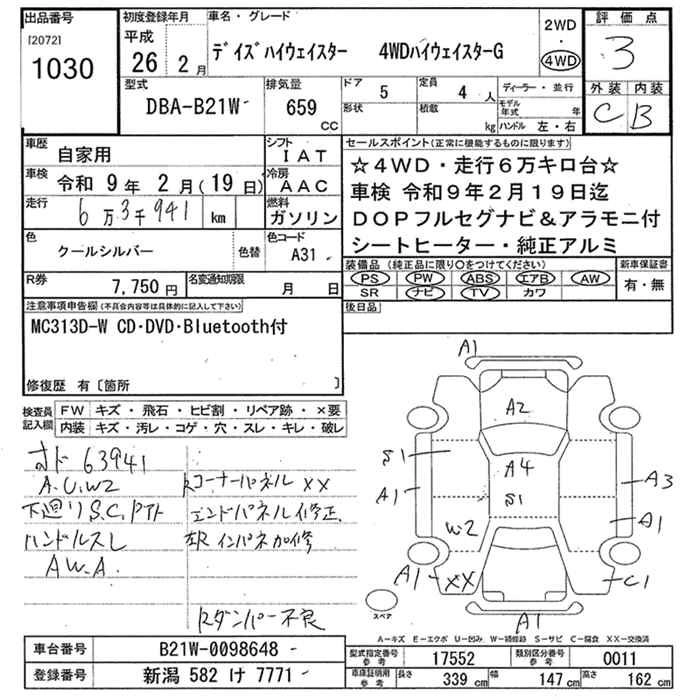 出品番号 初度登録年月 車名・グレード 2WD 評価点
[2072] 平成 デイズハイウェイスター 4WDハイウェイスターG ・ 3
1030 26 2月 4WD
型式 排気量 ドア 5 定員 4人 ディーラー・並行 外装 内装
DBA-B21W 659 cc 形状 積載 kg モデル年式 年 C B
ハンドル 左・右
車歴 自家用 シフト IAT セールスポイント(正常に機能するものに限ります)
車検 令和 9年 2月(19日) 冷房 AAC ☆4WD・走行6万キロ台☆
走行 6万3千941 km 燃料 ガソリン 車検 令和9年2月19日迄
DOPフルセグナビ&アラモニ付
色 クールシルバー 色替 色コード A31 シートヒーター・純正アルミ
R券 7,750円 名変通知期限 月 日 装備品(純正品に限り○をつけてください) 新車保証書
PS PW ABS エアB AW 有・無
SR ナビ TV カワ
注意事項申告欄(不具合内容等は具体的に記入して下さい) 後日品
MC313D-W CD・DVD・Bluetooth付
修復歴 有〔箇所 〕
検査員記入欄 FW キズ・飛石・ヒビ割・リペア跡・×要
内装 キズ・汚レ・コゲ・穴・スレ・キレ・破レ
オド 63941
A.U.W2 Rコーナーパネル XX
下廻りS.C.P.T エンドパネル修正
ハンドルスレ 左R インパネ加修
AW.A
Rダンパー不良
A1
A2
S1 A4
A1 S1 A3
W2 A1
A1 XX C1
A1
スペア
A—キズ E—エクボ U—凹み W—補修跡 S—サビ C—腐食 XX—交換済
車台番号 B21W-0098648 型式指定番号 参考 17552 類別区分番号 参考 0011
登録番号 新潟 582 け 7771 車庫証明用 参考 長さ 339cm 幅 147cm 高さ 162cm